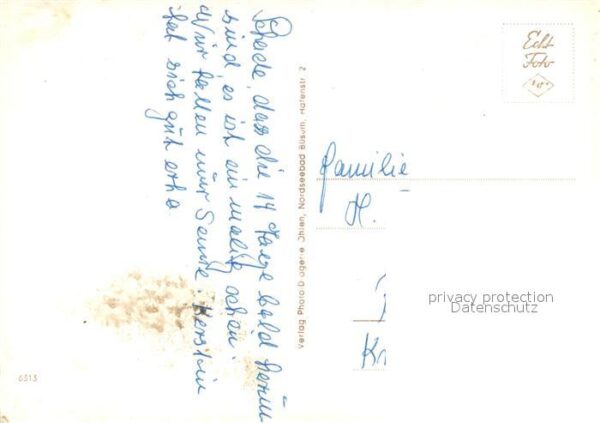 Schade, dass die 14 Tage bald herum
sind es ist einmalig schön.
Wir hatten nur Sonne. Kerstin
hat sich gut erho.
Verlag Photo-Drogerie Jhren, Nordseebad Büsum, Hafenstr. 2
Echt
Foto
Familie
H.
Kr
privacy protection
Datenschutz
6313